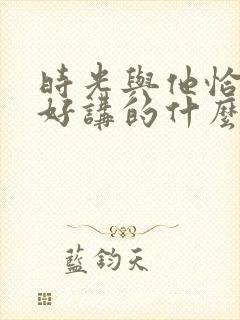 時光與他恰
好講的什麼
藍鈞天